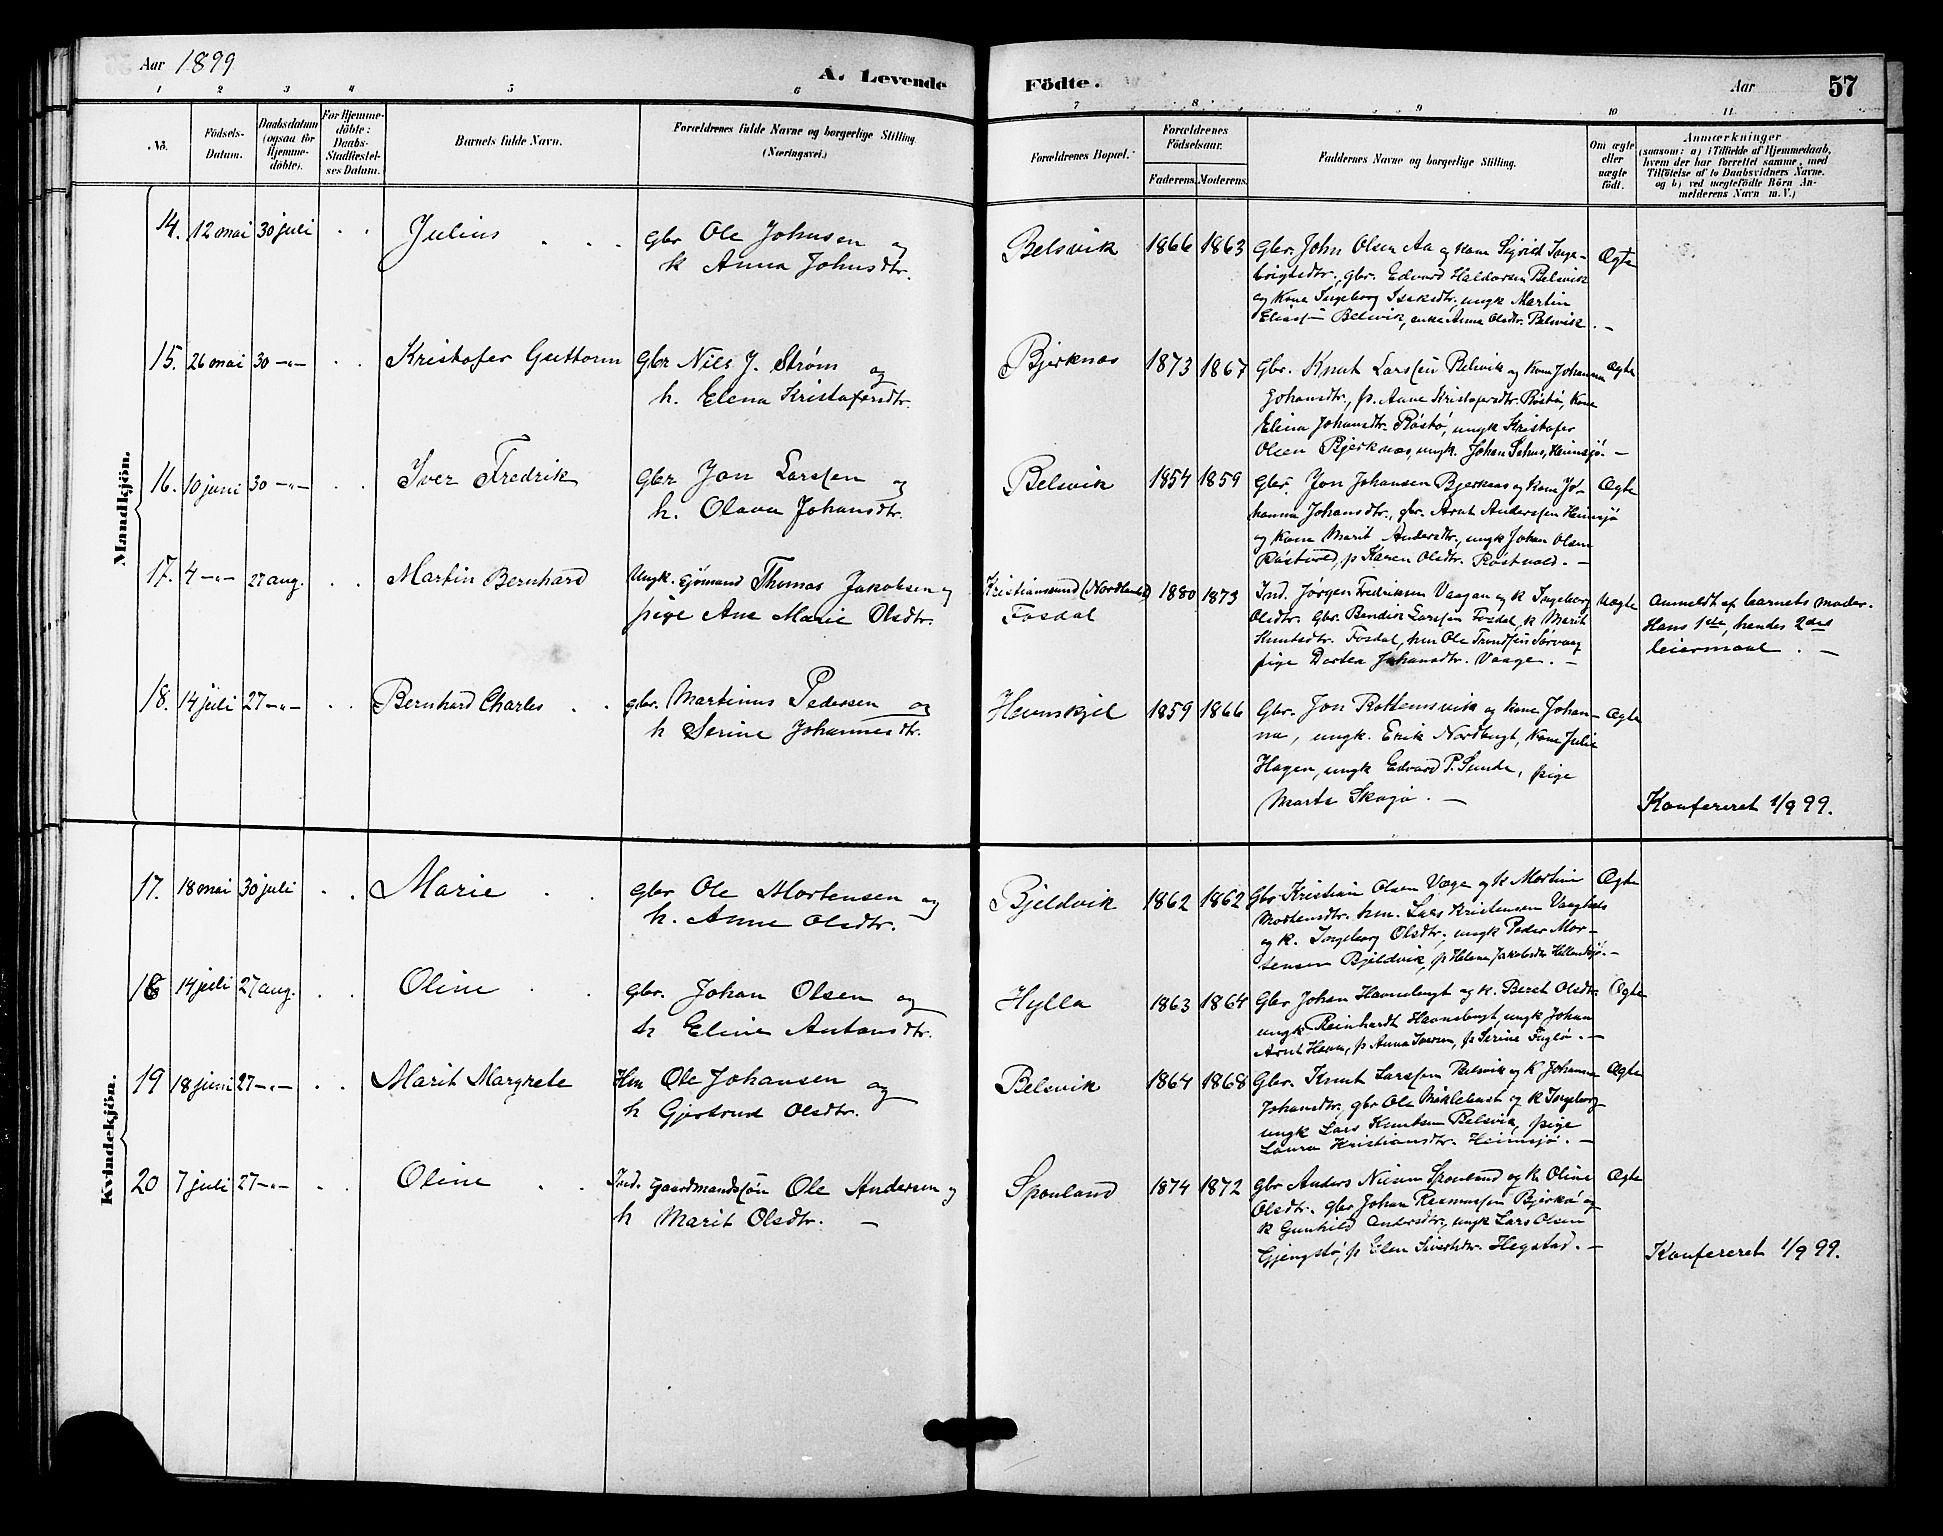 Aar 1899
A. Levende
Födte.
Aar
57
1 2 3 4 5 6 7 8 9 10 11
No.
Födsels-
Datum.
Daabsdatum
(ogsaa for
Hjemme-
döbte).
For Hjemme-
döbte:
Daabs-
Stadfæstel-
ses Datum.
Barnets fulde Navn.
Forældrenes fulde Navne og borgerlige Stilling.
(Næringsvei.)
Forældrenes Bopæl.
Forældrenes
Födselsaar.
Faderens. Moderens.
Faddernes Navne og borgerlige Stilling.
Om ægte
eller
uægte
födt.
Anmærkninger
(saasom: a) i Tilfælde af Hjemmedaab,
hvem der har forrettet samme, med
Tilföielse af to Daabsvidners Navne.
og b) ved uægtefödte Börn An-
melderens Navn m. V.)
Mandkjön.
14. 12 mai 30 juli Julius gbr Ole Johnsen og
k Anna Johnsdtr.
Belsvik 1866 1863 gbr. John Olsen Aa og kone Sigrid Inge-
brigtsdtr., gbr. Edvard Haldorsen Belsvik
og kone Ingeborg Isaksdtr., ungk Martin
Eliassen Belsvik, enke Anna Olsdtr. Belsvik. —
Ægte
15. 26 mai 30 —"— Kristofer Guttorm Gbr Nils J. Strøm og
h. Elena Kristofersdtr.
Bjerknes 1873 1867 Gbr. Knut Larssen Belsvik og kone Johanna
Johansdtr., p. Anne Kristofersdtr. Røstø, kone
Elina Johansdtr. Røstø, ungk Kristofer
Olsen Bjerknes, ungk. Johan Heimsjø. —
Ægte
16. 10 juni 30 —"— Iver Fredrik Gbr Jon Larssen og
h. Olava Johansdtr.
Belsvik 1854 1859 Gbr. Jon Johansen Bjerknes og kone Jo-
hanna Johansdtr., gbr. Arnt Anderssen Heimsjø
og kone Marit Andersdtr., ungk Johan Olsen
Røstvold, p Karen Olsdtr. Røstvold. —
Ægte
17. 4 —"— 27 aug. Martin Bernhard Ungk. sjømand Thomas Jakobsen og
pige Ane Marie Olsdtr.
Kristianssund (Nordlandet)
Fosdal
1880 1873 Ind. Jørgen Fredriksen Vaagan og k Ingeborg
Olsdtr. Gbr. Bendik Larssen Fosdal, k Marit
Knutsdtr. Fosdal, hm Ole Trondsen Sørvaag
pige Dortea Johansdtr. Vaage. —
Uægte
Anmeldt af barnets moder.
Hans 1ste, hendes 2det
leiermaal. —
18. 14 juli 27 —"— Bernhard Charles gbr. Martinus Pedersen og
h Serine Johannesdtr.
Hemskjel 1859 1866 Gbr. Jon Rottemsvik og kone Johan-
na, ungk. Erik Nordbugt, kone Julie
Hagen, ungk Edvard P. Sunde, pige
Marta Skogø. —
Ægte
Konfereret 1/9 99.
Kvindekjön.
17. 18 mai 30 juli Marie gbr Ole Mortensen og
h. Anne Olsdtr.
Bjeldvik 1862 1862 Gbr Kristian Olsen Vaage og k Martine
Mortensdtr. hm. Lars Kristensen
og k. Ingeborg Olsdtr., ungk Peder Mor-
tensen Bjeldvik, p Helena Jakobsdtr Hellandsjø. —
Ægte
18 14 juli 27 aug. Oline gbr. Johan Olsen og
h Eline Antonsdtr.
Hylla 1863 1864 Gbr Johan Havnebugt og k. Beret Olsdtr.
ungk Reinhardt Havnebugt, ungk Johan
Arnt Havn, p Anna Iversen, p Serine Fuglø. —
Ægte
19 18 juni 27 —"— Marit Margrete Hm Ole Johansen og
h Gjertrud Olsdtr.
Belsvik 1864 1868 Gbr. Knut Larssen Belsvik og k Johanna
Johansdtr., gbr Ole Miklebust og k Ingeborg
ungk Lars Knutsen Belsvik, pige
Laura Kristiansdtr. Heimsjø. —
Ægte
20 7 juli 27 —"— Oline Ind. gaardmandssøn Ole Andersen og
h Marit Olsdtr. —
Sponland 1874 1872 gbr Anders Nilsen Sponland og k Oline
Olsdtr. gbr Johan Rasmussen Bjerkø og
k Gunhild Andersdtr., ungk Lars Olsen
Gjengstø, p Elen Sivertsdtr. Hegstad. —
Ægte
Konfereret 1/9 99.